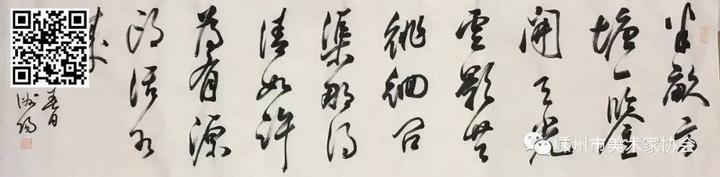 半畝方
塘一鉴
開天光
雲影共
徘徊问
渠那得
清如許
為有源
头活水
来
春日
嵊州市美术家协会